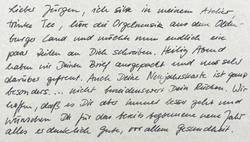 Lieber Jürgen, ich sitze in meinem Atelier
trinke Tee, höre die Orgelmusik aus dem Olden
burger Land und möchte nun endlich ein
paar Zeilen an Dich schreiben. Heilig Abend
haben wir Deinen Brief ausgepackt und uns sehr
darüber gefreut. Auch Deine Neujahrskarte ist ganz
besonders.... nicht Deine Rücken. Wir
hoffen, daß es Dir immer besser geht und
wünschen Dir für das bereits begonnene neue Jahr
alles erdenklich gute, vor allem Gesundheit.